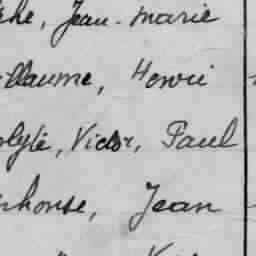 phe, Jean-Marie
illaume, Henri
olyte, Victor, Paul
phonse, Jean